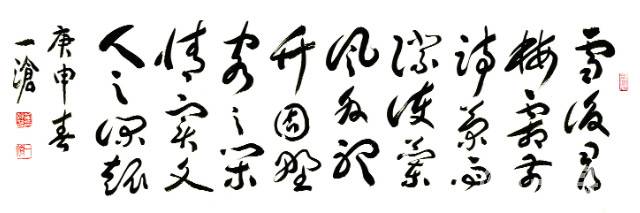 雪後尋
梅霜前
訪菊雨
際護蘭
風外聽
竹固野
客之閒
情實文
人之深趣
庚申春
一滄